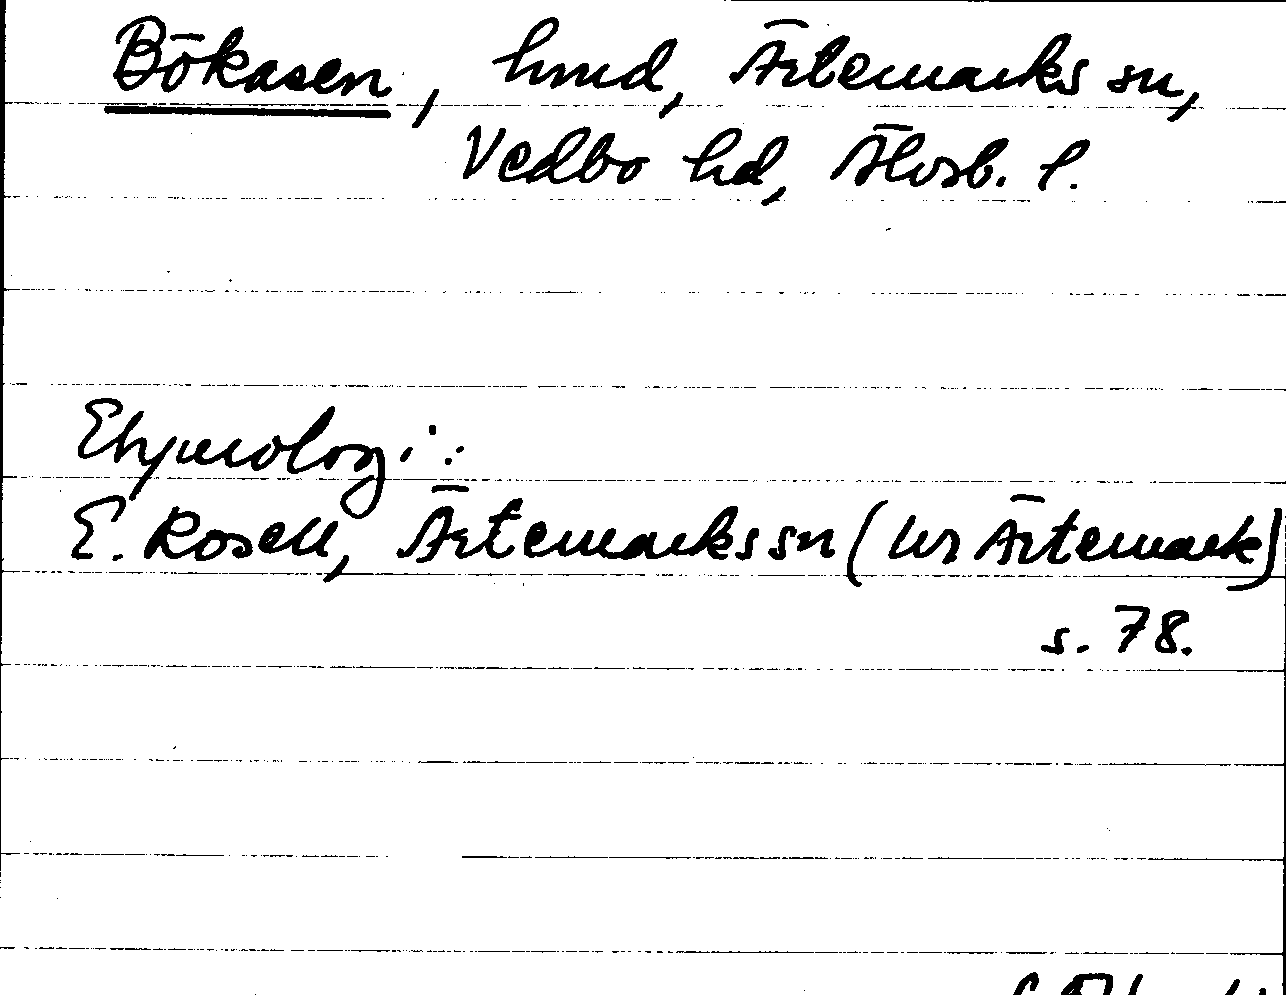 Bökasen, hmd, Ärtemarks sn,
Vedbo hd, Älvsb. l.
Etymologi:
E. Rosell, Ärtemarks sn (hs Ärtemark)
s. 78.